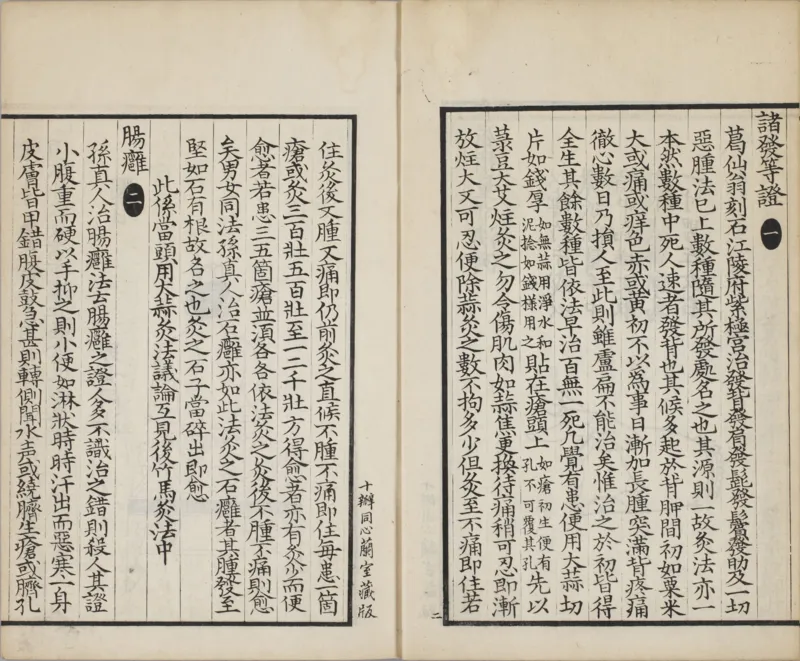 諸發等證 一
葛仙翁刻石江陵府紫極宮治發背發眉發髭發鬢發肋及一切
惡腫法已上數種隨其所發處名之也其源則一故灸法亦一
本然數種中死人速者發背也其候多起於背胛間初如粟米
大或痛或痒色赤或黃初不以爲事日漸加長腫突滿背疼痛
徹心數日乃損人至此則雖盧扁不能治矣惟治之於初皆得
全生其餘數種皆依法早治百無一死凡覺有患便用大蒜切
片如錢厚如無蒜用淨水和泥捻如錢樣用之貼在瘡頭上如瘡初生便有孔不可覆其孔先以
菉豆大艾炷灸之勿令傷肌肉如蒜焦更換待痛稍可忍即漸
放炷大又可忍便除蒜灸之數不拘多少但灸至不痛即住若
二
十瓣同心蘭室藏版
住灸後又腫又痛即仍前灸之直候不腫不痛即住每患一箇
瘡或灸三百壯五百壯至一二千壯方得愈者亦有灸少而便
愈者若患三五箇瘡並須各各依法灸之灸後不腫不痛則愈
矣男女同法孫真人治石癰亦如此法灸之石癰者其腫發至
堅如石有根故名之也灸之石子當碎出即愈
此係當頭用大蒜灸法議論互見後竹馬灸法中
腸癰 二
孫真人治腸癰法云腸癰之證人多不識治之錯則殺人其證
小腹重而硬以手抑之則小便如淋狀時時汗出而惡寒一身
皮膚皆甲錯腹皮鼓急甚則轉側聞水声或繞臍生瘡或臍孔